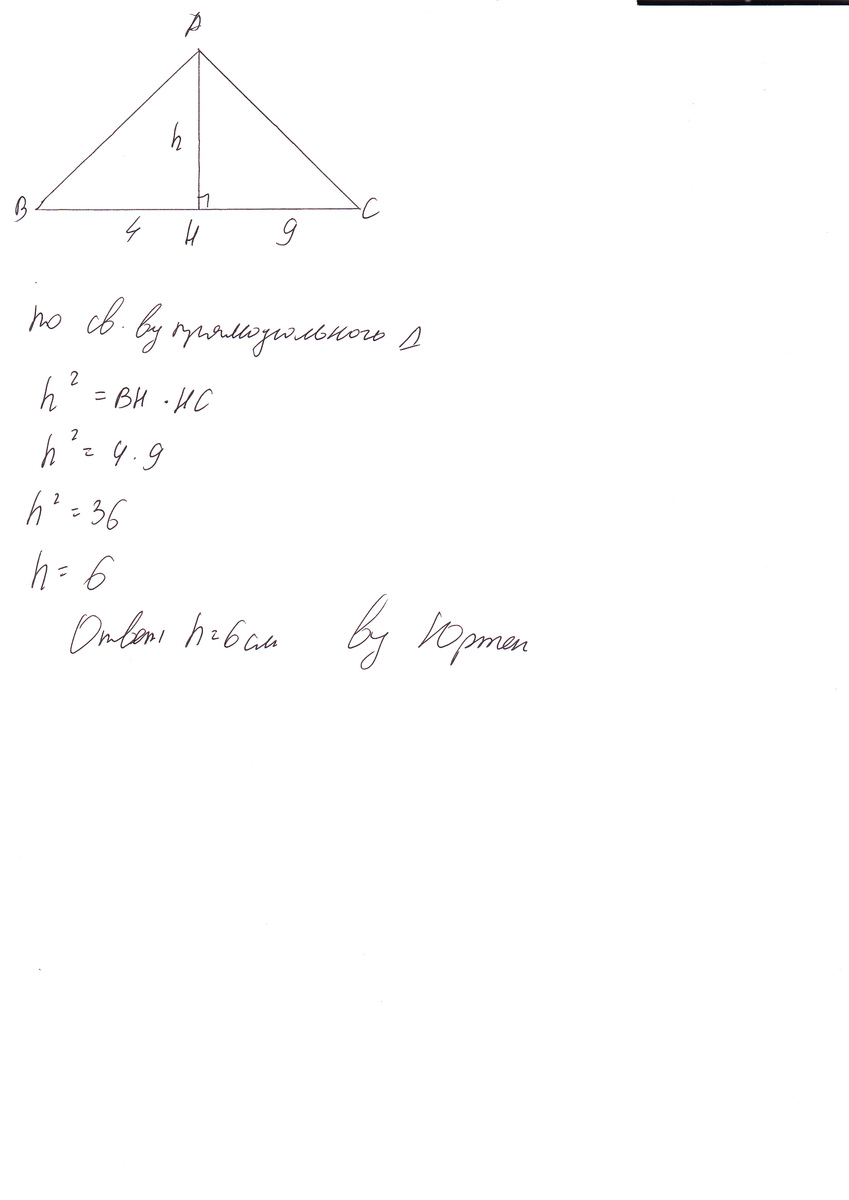 A
h
B
C
4 H 9
по св. ву прямоугольного Δ
h² = BH · HC
h² = 4 · 9
h² = 36
h = 6
Ответ: h = 6 см by